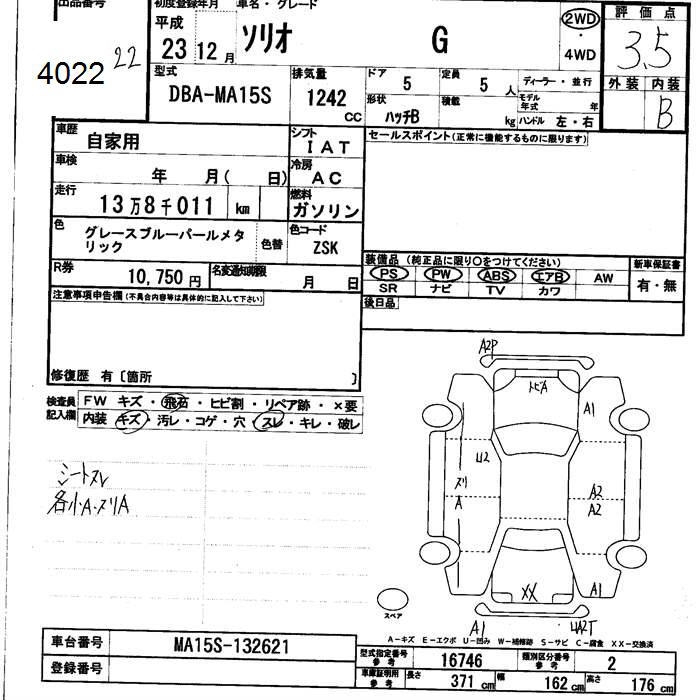 出品番号 初度登録年月 車名・グレード 評価点
4022 22 平成 23 12月 ソリオ G 2WD・4WD 3.5
型式 DBA-MA15S 排気量 1242 CC ドア 5 定員 5 人 ディーラー・並行 外装 内装
形状 ハッチB 積載 kg モデル年式 年 ハンドル 左・右 B
車歴 自家用 シフト IAT セールスポイント(正常に機能するものに限ります)
車検 年 月( 日) 冷房 AC
走行 13万8千011 km 燃料 ガソリン
色 グレースブルーパールメタリック 色替 色コード ZSK
装備品(純正品に限り○をつけてください) 新車保証書
R券 10,750円 名変通知期限 月 日 PS PW ABS エアB AW 有・無
SR ナビ TV カワ
注意事項申告欄(不具合内容等は具体的に記入して下さい) 後日品
修復歴 有〔箇所 〕
検査員記入欄 FW キズ・飛石・ヒビ割・リペア跡・×要
内装 キズ・汚レ・コゲ・穴・スレ・キレ・破レ
シートスレ
各小A・ヌリA
A2P
トビA
A1
U2
ヌリ
A
A2
A2
XX
A1
スペア
A1
UA2T
A-キズ E-エクボ U-凹み W-補修跡 S-サビ C-腐食 XX-交換済
車台番号 MA15S-132621 型式指定番号 参考 16746 類別区分番号 参考 2
登録番号 車庫証明用 参考 長さ 371cm 幅 162cm 高さ 176cm